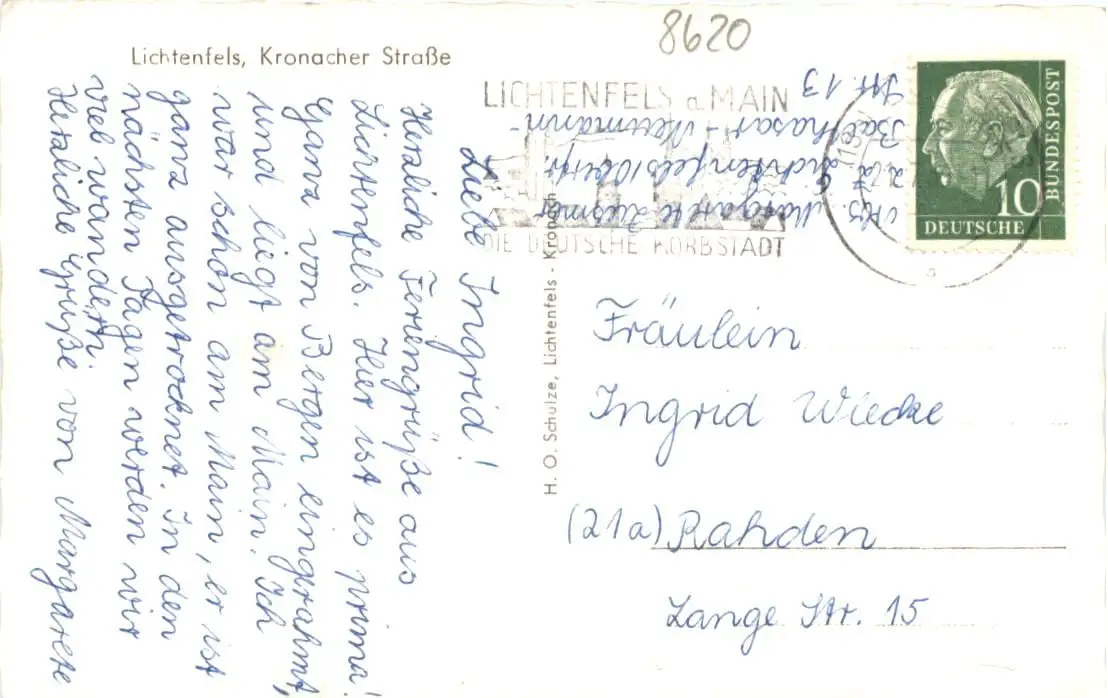 8620
Lichtenfels, Kronacher Straße
LICHTENFELS a. MAIN
DIE DEUTSCHE KORBSTADT
BUNDESPOST
10
DEUTSCHE
Abs. Margarete
z. Zt. Lichtenfels/Oberfr.
Balthasar-Neumann-
Str. 13
Liebe Ingrid!
Herzliche Feriengrüße aus
Lichtenfels. Hier ist es prima!
Ganz von Bergen eingerahmt,
und liegt am Main. Ich
war schon am Main, er ist
ganz ausgetrocknet. In den
nächsten Tagen werden wir
viel wandern.
Herzliche Grüße von Margarete
H. O. Schulze, Lichtenfels - Kronach
Fräulein
Ingrid Wiecke
(21a) Rahden
Lange Str. 15